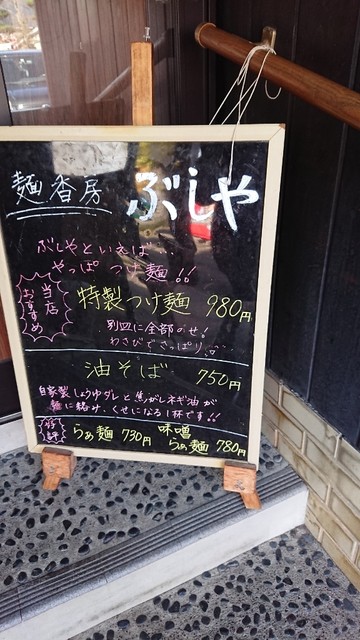 麺香房 ぶしや
ぶしやといえば…
やっぱつけ麺!!
当店
おすすめ
特製つけ麺 980円
別皿に全部のせ!
わさびでさっぱり♡
油そば 750円
自家製しょうゆダレと焦がしネギ油が
麺に絡み、くせになる1杯です!!
好評
らぁ麺 730円
味噌
らぁ麺 780円